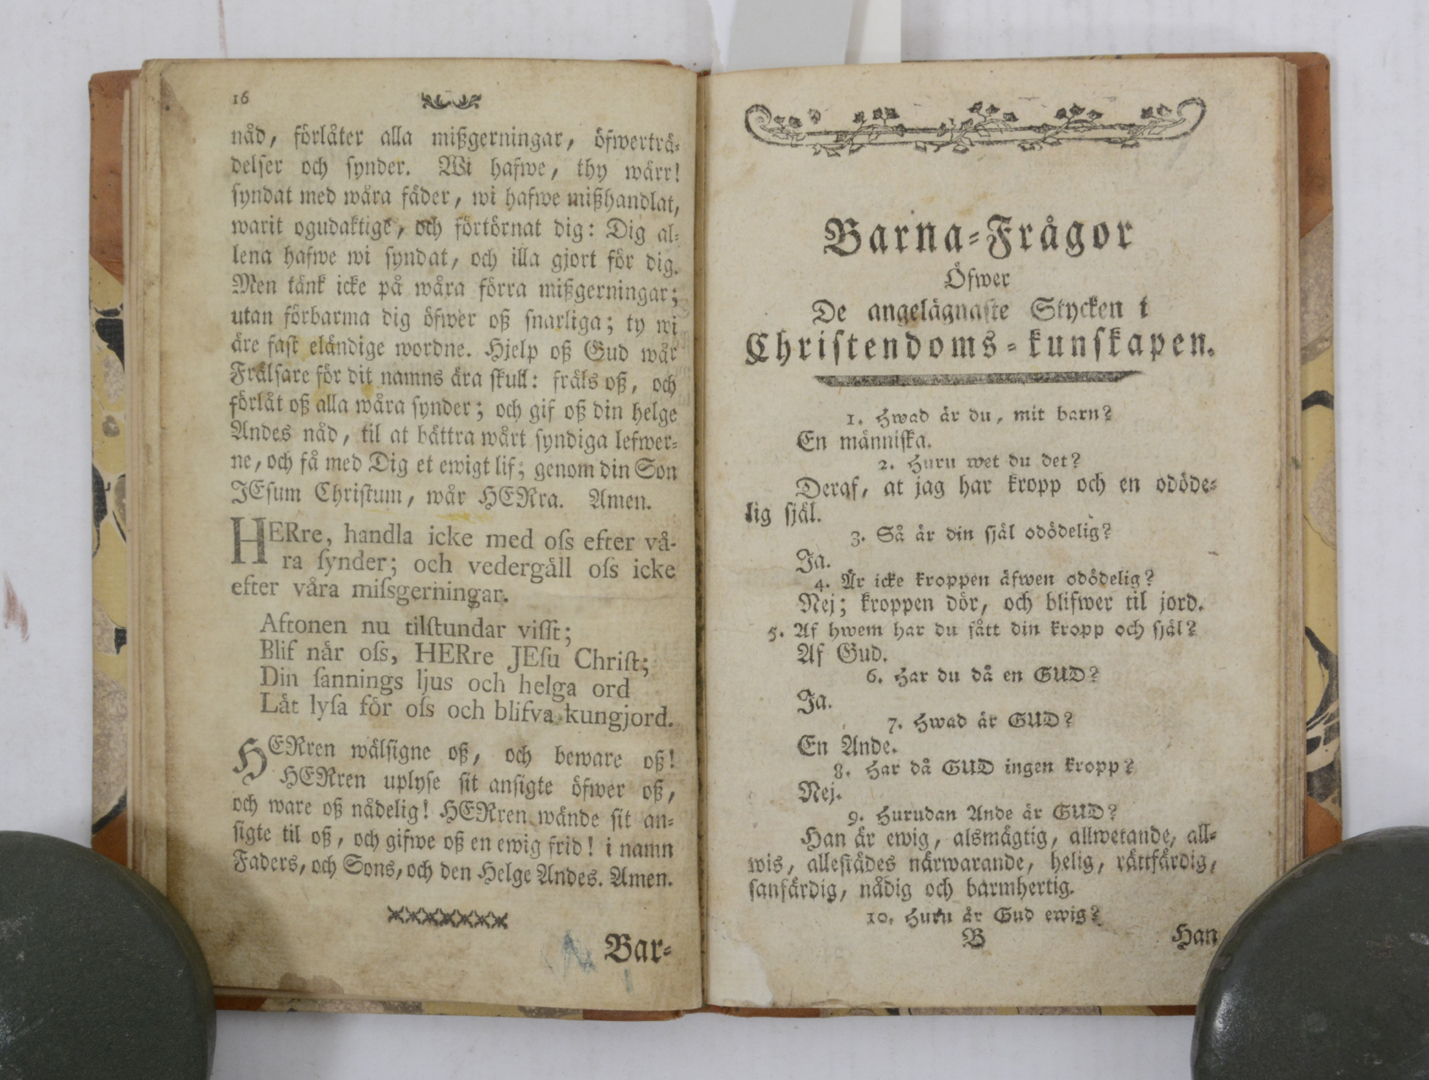 16
nåd, förlåter alla mißgerningar, öfwerträ-
delser och synder. Wi hafwe, thy wärr!
syndat med wåra fäder, wi hafwe mißhandlat,
warit ogudaktige, och förtörnat dig: Dig al-
lena hafwe wi syndat, och illa gjort för dig.
Men tänk icke på wåra förra mißgerningar;
utan förbarma dig öfwer oß snarliga; ty wi
äre fast eländige wordne. Hjelp oß Gud wår
Frälsare för dit namns ära skull: fräls oß, och
förlåt oß alla wåra synder; och gif oß din helge
Andes nåd, til at bättra wårt syndiga lefwer-
ne, och få med Dig et ewigt lif; genom din Son
JEsum Christum, wår HERra. Amen.
HERre, handla icke med oſs efter vå-
ra ſynder; och vedergåll oſs icke
efter våra miſsgerningar.
Aftonen nu tilſtundar viſſt;
Blif når oſs, HERre JEſu Chriſt;
Din ſannings ljus och helga ord
Låt lyſa för oſs och blifva kungjord.
HERren wälsigne oß, och beware oß!
HERren uplyse sit ansigte öfwer oß,
och ware oß nådelig! HERren wände sit an-
sigte til oß, och gifwe oß en ewig frid! i namn
Faders, och Sons, och den Helge Andes. Amen.
Bar-
Barna-Frågor
Öfwer
De angelägnaste Stycken i
Christendoms-kunskapen.
1. Hwad är du, mit barn?
En människa.
2. Huru wet du det?
Deraf, at jag har kropp och en odöde-
lig själ.
3. Så är din själ odödelig?
Ja.
4. Är icke kroppen äfwen odödelig?
Nej; kroppen dör, och blifwer til jord.
5. Af hwem har du fått din kropp och själ?
Af Gud.
6. Har du då en GUD?
Ja.
7. Hwad är GUD?
En Ande.
8. Har då GUD ingen kropp?
Nej.
9. Hurudan Ande är GUD?
Han är ewig, alsmägtig, allwetande, all-
wis, allestädes närwarande, helig, rättfärdig,
sanfärdig, nådig och barmhertig.
10. Huru är Gud ewig?
B
Han